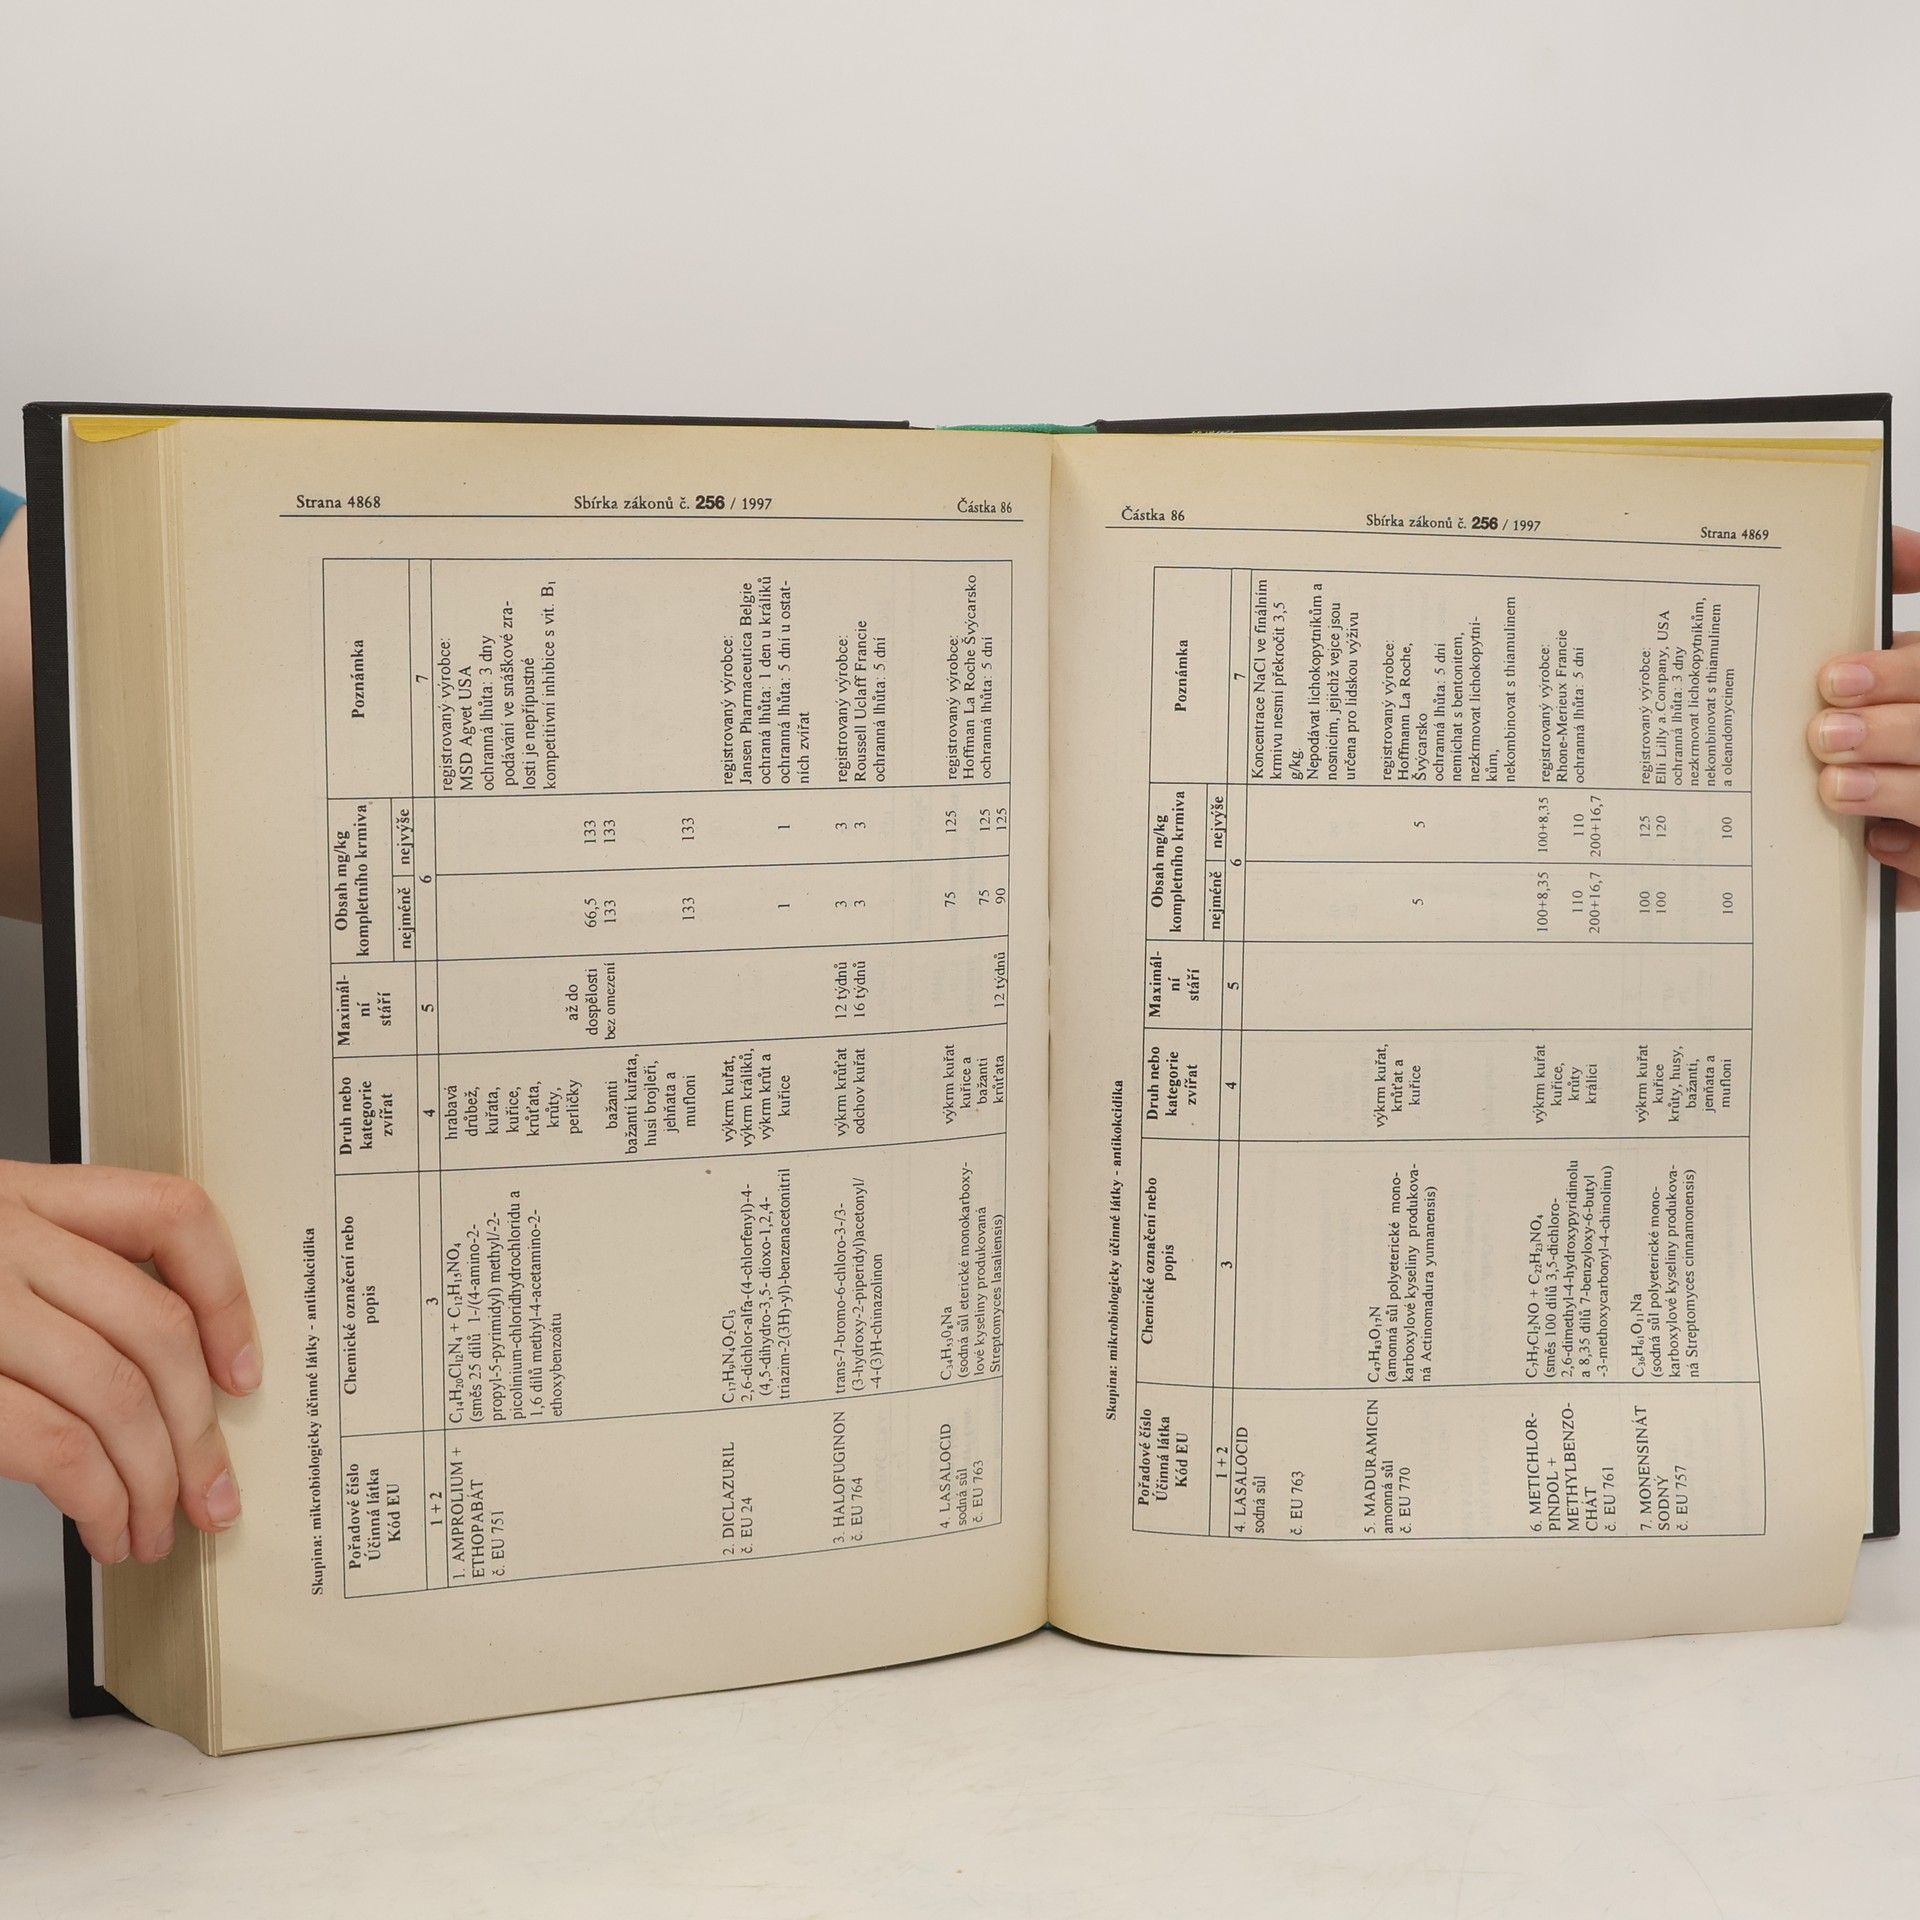 Strana 4868
Sbírka zákonů č. 256 / 1997
Částka 86
Skupina: mikrobiologicky účinné látky - antikokcidika
Pořadové číslo
Účinná látka
Kód EU
Chemické označení nebo
popis
Druh nebo
kategorie
zvířat
Maximál-
ní
stáří
Obsah mg/kg
kompletního krmiva
nejméně
nejvýše
Poznámka
1+2
3
4
5
6
7
1. AMPROLIUM +
ETHOPABÁT
č. EU 751
C₁₄H₂₀Cl₁₂N₄ + C₁₂H₁₅NO₄
(směs 25 dílů 1-/(4-amino-2-
propyl-5-pyrimidyl) methyl/-2-
picolinium-chloridhydrochloridu a
1,6 dílů methyl-4-acetamino-2-
ethoxybenzoátu
hrabavá
drůbež,
kuřata,
kuřice,
krůťata,
krůty,
perličky
bažanti
bažantí kuřata,
husí brojleři,
jehňata a
mufloni
až do
dospělosti
bez omezení
66,5
133
133
133
133
133
registrovaný výrobce:
MSD Agvet USA
ochranná lhůta: 3 dny
podávání ve snáškové zra-
losti je nepřípustné
kompetitivní inhibice s vit. B₁
2. DICLAZURIL
č. EU 24
C₁₇H₉N₄O₂Cl₃
2,6-dichlor-alfa-(4-chlorfenyl)-4-
(4,5-dihydro-3,5- dioxo-1,2,4-
triazim-2(3H)-yl)-benzenacetonitril
výkrm kuřat,
výkrm králíků,
výkrm krůt a
kuřice
1
1
registrovaný výrobce:
Jansen Pharmaceutica Belgie
ochraná lhůta: 1 den u králíků
ochranná lhůta: 5 dní u ostat-
ních zvířat
3. HALOFUGINON
č. EU 764
trans-7-bromo-6-chloro-3-/3-
(3-hydroxy-2-piperidyl)acetonyl/
-4-(3)H-chinazolinon
výkrm krůťat
odchov kuřat
12 týdnů
16 týdnů
3
3
3
3
registrovaný výrobce:
Roussell Uclaff Francie
ochranná lhůta: 5 dní
4. LASALOCID
sodná sůl
č. EU 763
C₃₄H₅₃O₈Na
(sodná sůl eterické monokarboxy-
lové kyseliny produkovaná
Streptomyces lasaliensis)
výkrm kuřat
kuřice a
bažanti
krůťata
12 týdnů
75
75
90
125
125
125
registrovaný výrobce:
Hoffman La Roche Švýcarsko
ochranná lhůta: 5 dní
Částka 86
Sbírka zákonů č. 256 / 1997
Strana 4869
Skupina: mikrobiologicky účinné látky - antikokcidika
Pořadové číslo
Účinná látka
Kód EU
Chemické označení nebo
popis
Druh nebo
kategorie
zvířat
Maximál-
ní
stáří
Obsah mg/kg
kompletního krmiva
nejméně
nejvýše
Poznámka
1+2
3
4
5
6
7
4. LASALOCID
sodná sůl
č. EU 763
Koncentrace NaCl ve finálním
krmivu nesmí překročit 3,5
g/kg.
Nepodávat lichokopytníkům a
nosnicím, jejichž vejce jsou
určena pro lidskou výživu
5. MADURAMICIN
amonná sůl
č. EU 770
C₄₇H₈₃O₁₇N
(amonná sůl polyeterické mono-
karboxylové kyseliny produkova-
ná Actinomadura yumanensis)
výkrm kuřat,
krůťat a
kuřice
5
5
registrovaný výrobce:
Hoffmann La Roche,
Švýcarsko
ochranná lhůta: 5 dní
nemíchat s bentonitem,
nezkrmovat lichokopytní-
kům,
nekombinovat s thiamulinem
6. METICHLOR-
PINDOL +
METHYLBENZO-
CHÁT
č. EU 761
C₇H₇Cl₂NO + C₂₂H₂₃NO₄
(směs 100 dílů 3,5-dichloro-
2,6-dimethyl-4-hydroxypyridinolu
a 8,35 dílů 7-benzyloxy-6-butyl
-3-methoxycarbonyl-4-chinolinu)
výkrm kuřat
kuřice,
krůty
králíci
100+8,35
110
200+16,7
100+8,35
110
200+16,7
registrovaný výrobce:
Rhone-Merieux Francie
ochranná lhůta: 5 dní
7. MONENSINÁT
SODNÝ
č. EU 757
C₃₆H₆₁O₁₁Na
(sodná sůl polyeterické mono-
karboxylové kyseliny produkova-
ná Streptomyces cinnamonensis)
výkrm kuřat
kuřice
krůty, husy,
bažanti,
jehňata a
mufloni
100
100
100
125
120
100
registrovaný výrobce:
Elli Lilly a Company, USA
ochranná lhůta: 3 dny
nezkrmovat lichokopytníkům,
nekombinovat s thiamulinem
a oleandomycinem